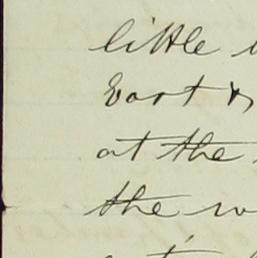 little
East &
at the
the w